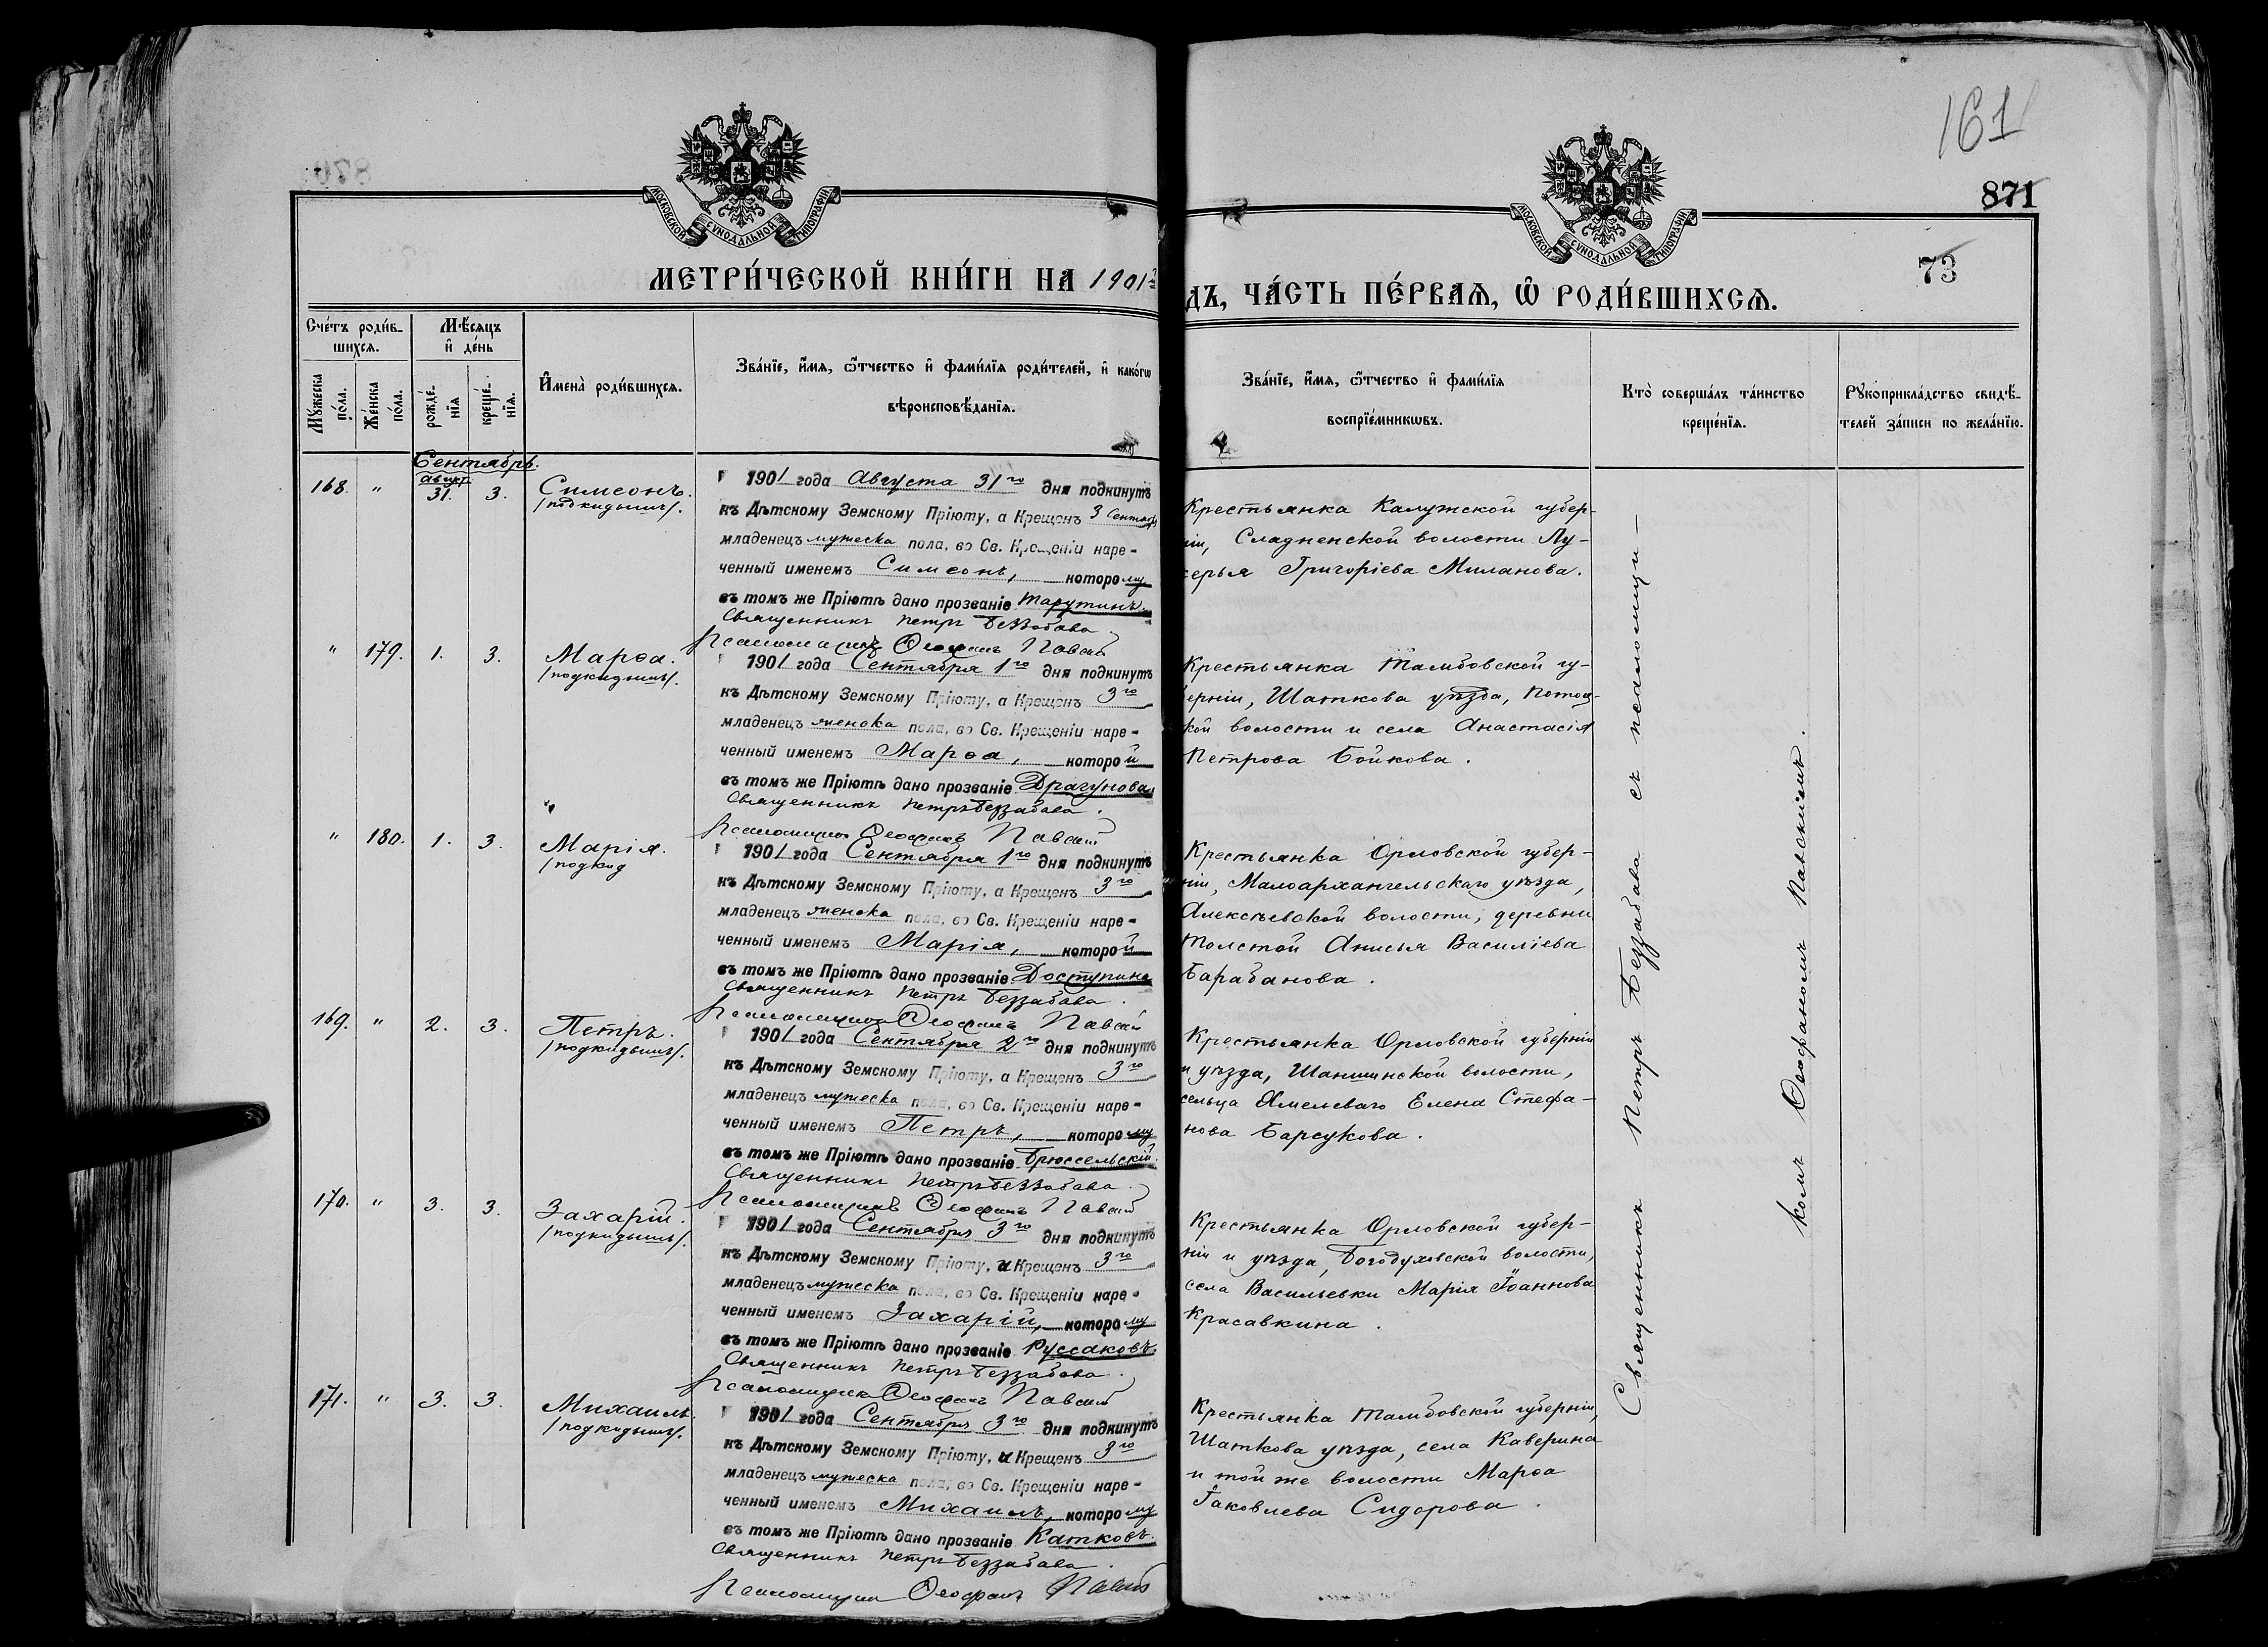 161
871
73
МОСКОВСКОЙ СѴНОДАЛЬНОЙ ТИПОГРАФІИ
МОСКОВСКОЙ СѴНОДАЛЬНОЙ ТИПОГРАФІИ
МЕТРИ́ЧЕСКОЙ КНИ́ГИ НА 1901 г
ДЪ, ЧА́СТЬ ПЕ́РВАЯ, Ѡ҆ РОДИ́ВШИХСЯ.
Сче́тъ роди́в-
шихся.
Мѣ́сяцъ
и҆ де́нь
Мꙋжеска
по́ла.
Же́нска
по́ла.
рожде́-
нїя
креще́-
нїя.
И҆мена̀ роди́вшихся.
Зва́нїе, и҆́мя, ѻ҆́тчество и҆ фами́лїя роди́телей, и҆ како́гѡ
вѣроисповѣ́данїя.
Зва́нїе, и҆́мя, ѻ҆́тчество и҆ фами́лїя
воспрїе́мникѡвъ.
Кто̀ соверша́лъ та́инство
креще́нїя.
Рꙋкоприкла́дство свидѣ́-
телей за́писи по жела́нїю.
Сентябрь.
168. " август 31. 3. Симеонъ.
/подкидышъ/.
1901 года Августа 31го дня подкинутъ
къ Дѣтскому Земскому Пріюту, а Крещенъ 3 Сентяб
младенецъ мужеска пола, во Св. Крещеніи наре-
ченный именемъ Симеонъ, которому
въ томъ же Пріютѣ дано прозваніе Тарутинъ.
Священникъ Петръ Беззабава.
Псаломщикъ Ѳеофанъ Павскій
Крестьянка Калужской губер-
ніи, Сладненской волости Лу-
керья Григоріева Миланова.
" 179. 1. 3. Марѳа.
/подкидышъ/.
1901 года Сентября 1го дня подкинутъ
къ Дѣтскому Земскому Пріюту, а Крещенъ 3го
младенецъ женска пола, во Св. Крещеніи наре-
ченный именемъ Марѳа, которой
въ томъ же Пріютѣ дано прозваніе Драгунова
Священникъ Петръ Беззабава.
Псаломщикъ Ѳеофанъ Павскій
Крестьянка Тамбовской гу-
берніи, Шаткова уѣзда,
кой волости и села Анастасія
Петрова Бойкова.
" 180. 1. 3. Марія.
/подкид
1901 года Сентября 1го дня подкинутъ
къ Дѣтскому Земскому Пріюту, а Крещенъ 3го
младенецъ женска пола, во Св. Крещеніи наре-
ченный именемъ Марія, которой
въ томъ же Пріютѣ дано прозваніе Доступина
Священникъ Петръ Беззабава.
Псаломщикъ Ѳеофанъ Павскій
Крестьянка Орловской губер-
ніи, Малоархангельскаго уѣзда,
Алексѣевской волости, деревни
Толстой Анисья Василіева
Барабанова.
169. " 2. 3. Петръ.
/подкидышъ/.
1901 года Сентября 2го дня подкинутъ
къ Дѣтскому Земскому Пріюту, а Крещенъ 3го
младенецъ мужеска пола, во Св. Крещеніи наре-
ченный именемъ Петръ, которому
въ томъ же Пріютѣ дано прозваніе Брюссельскій.
Священникъ Петръ Беззабава.
Псаломщикъ Ѳеофанъ Павскій
Крестьянка Орловской губерніи
и уѣзда, Шаншинской волости,
сельца Хмелеваго Елена Стефа-
нова Барсукова.
170. " 3. 3. Захарій.
/подкидышъ/.
1901 года Сентября 3го дня подкинутъ
къ Дѣтскому Земскому Пріюту, и Крещенъ 3го
младенецъ мужеска пола, во Св. Крещеніи наре-
ченный именемъ Захарій, которому
въ томъ же Пріютѣ дано прозваніе Руссаковъ.
Священникъ Петръ Беззабава.
Псаломщикъ Ѳеофанъ Павскій
Крестьянка Орловской губер-
ніи и уѣзда, Богодуховской волости,
села Васильевки Марія Іоаннова
Красавкина.
171. " 3. 3. Михаилъ.
/подкидышъ/.
1901 года Сентября 3го дня подкинутъ
къ Дѣтскому Земскому Пріюту, и Крещенъ 3го
младенецъ мужеска пола, во Св. Крещеніи наре-
ченный именемъ Михаилъ, которому
въ томъ же Пріютѣ дано прозваніе Катковъ.
Священникъ Петръ Беззабава.
Псаломщикъ Ѳеофанъ Павскій
Крестьянка Тамбовской губерніи,
Шаткова уѣзда, села Каверина
и той же волости Марѳа
Іаковлева Сидорова.
Священникъ Петръ Беззабава съ псаломщи-
комъ Ѳеофаномъ Павскимъ.